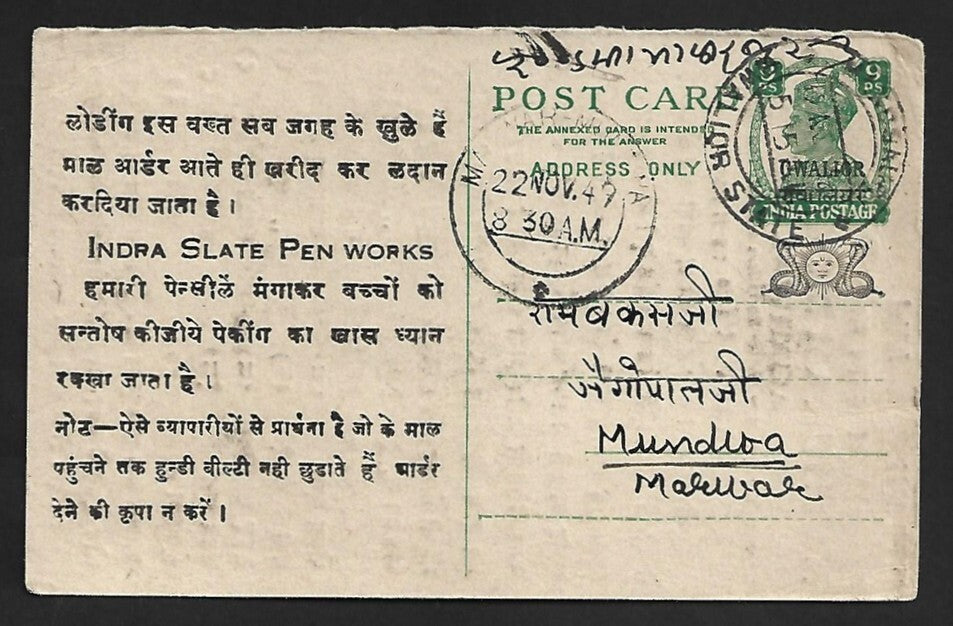 लोडींग इस वख्त सब जगह के खुले हैं
माल आर्डर आते ही खरीद कर लदान
करदिया जाता है।
INDRA SLATE PEN WORKS
हमारी पेन्सीलें मंगाकर बच्चों को
सन्तोष कीजीये पेकींग का खास ध्यान
रक्खा जाता है।
नोट—ऐसे व्यापारीयों से प्रार्थना है जो के माल
पहुंचने तक हुन्डी बील्टी नही छुडाते हैं आर्डर
देने की कृपा न करें।
POST CARD
THE ANNEXED CARD IS INTENDED
FOR THE ANSWER
ADDRESS ONLY
9 PS
9 PS
GWALIOR
INDIA POSTAGE
GWALIOR STATE
22 NOV. 49
8 30 A.M.
रामबकसजी
जैगोपालजी
Mundwa
Marwar